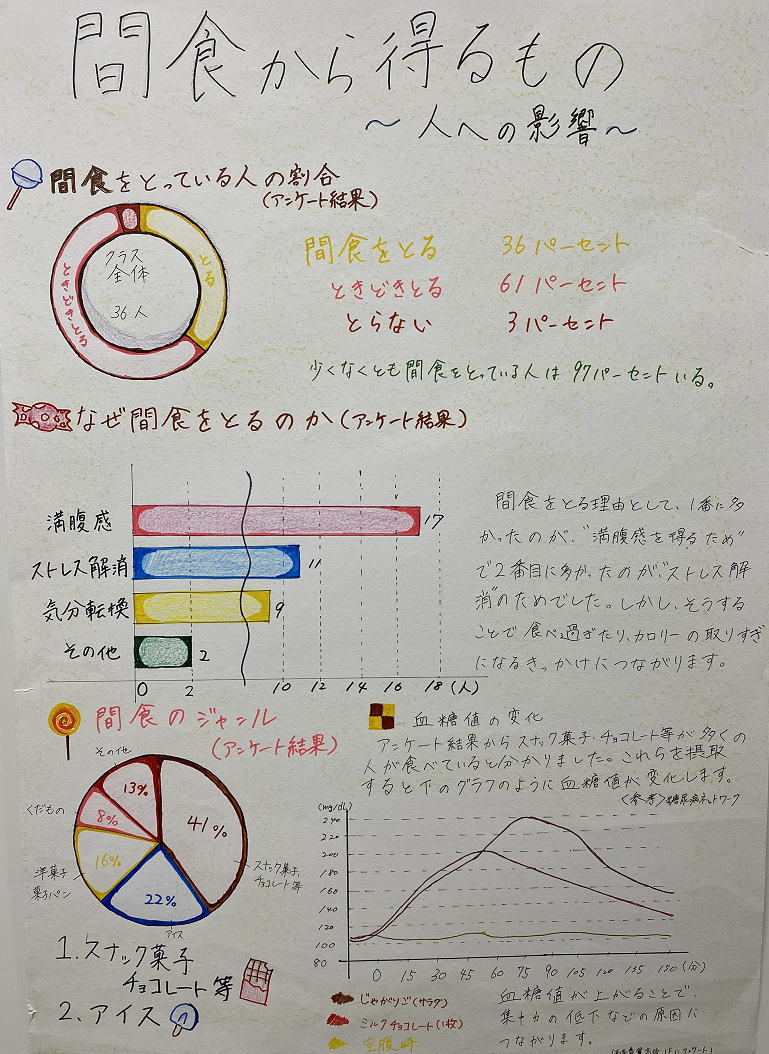 間食から得るもの
～人への影響～
間食をとっている人の割合
(アンケート結果)
クラス
全体
36人
とる
ときどきとる
間食をとる 36パーセント
ときどきとる 61パーセント
とらない 3パーセント
少くなくとも間食をとっている人は97パーセントいる。
なぜ間食をとるのか(アンケート結果)
満腹感 17
ストレス解消 11
気分転換 9
その他 2
0 2 10 12 14 16 18 (人)
間食をとる理由として、1番に多
かったのが、"満腹感を得るため"
で2番目に多かったのが"ストレス解
消"のためでした。しかし、そうする
ことで食べ過ぎたり、カロリーの取りすぎ
になるきっかけにつながります。
間食のジャンル
(アンケート結果)
その他
13%
くだもの
8%
洋菓子
菓子パン
16%
アイス
22%
41%
スナック菓子、
チョコレート等
1.スナック菓子
チョコレート等
2.アイス
血糖値の変化
アンケート結果からスナック菓子・チョコレート等が多くの
人が食べていると分かりました。これらを摂取
すると下のグラフのように血糖値が変化します。
<参考>糖尿病ネットワーク
(mg/dL)
240
220
200
180
160
140
120
100
80
0 15 30 45 60 75 90 105 120 135 150 (分)
じゃがりご(サラダ)
ミルクチョコレート(1枚)
空腹時
血糖値が上がることで、
集中力の低下などの原因に
つながります。